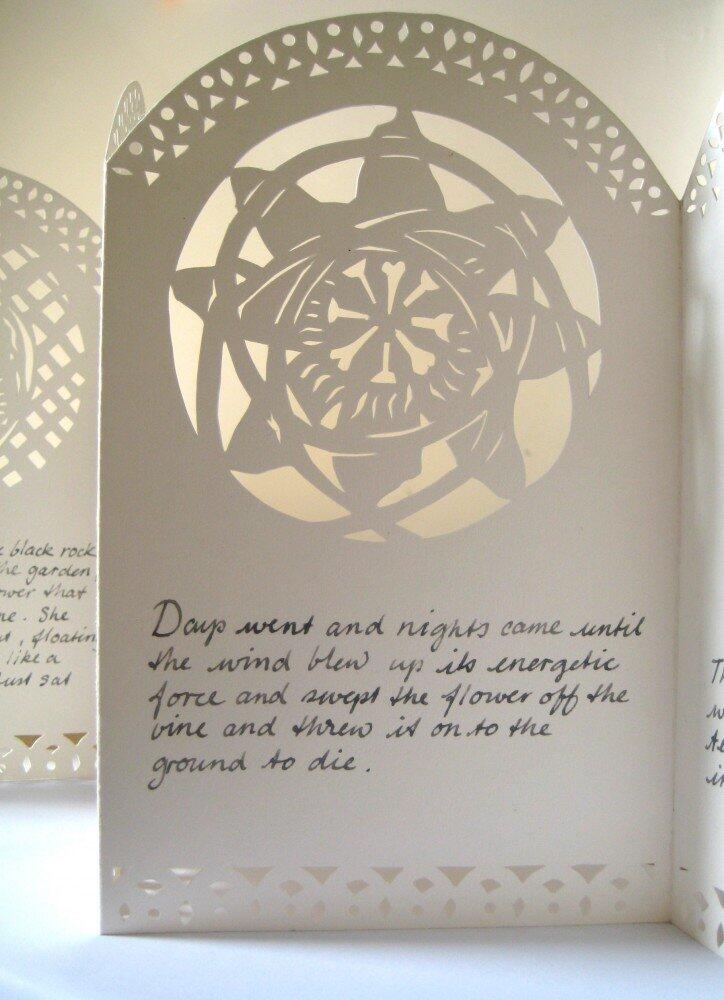 black rock
the garden
that
me. She
floating
like a
dust sat
Days went and nights came until
the wind blew up its energetic
force and swept the flower off the
vine and threw it on to the
ground to die.